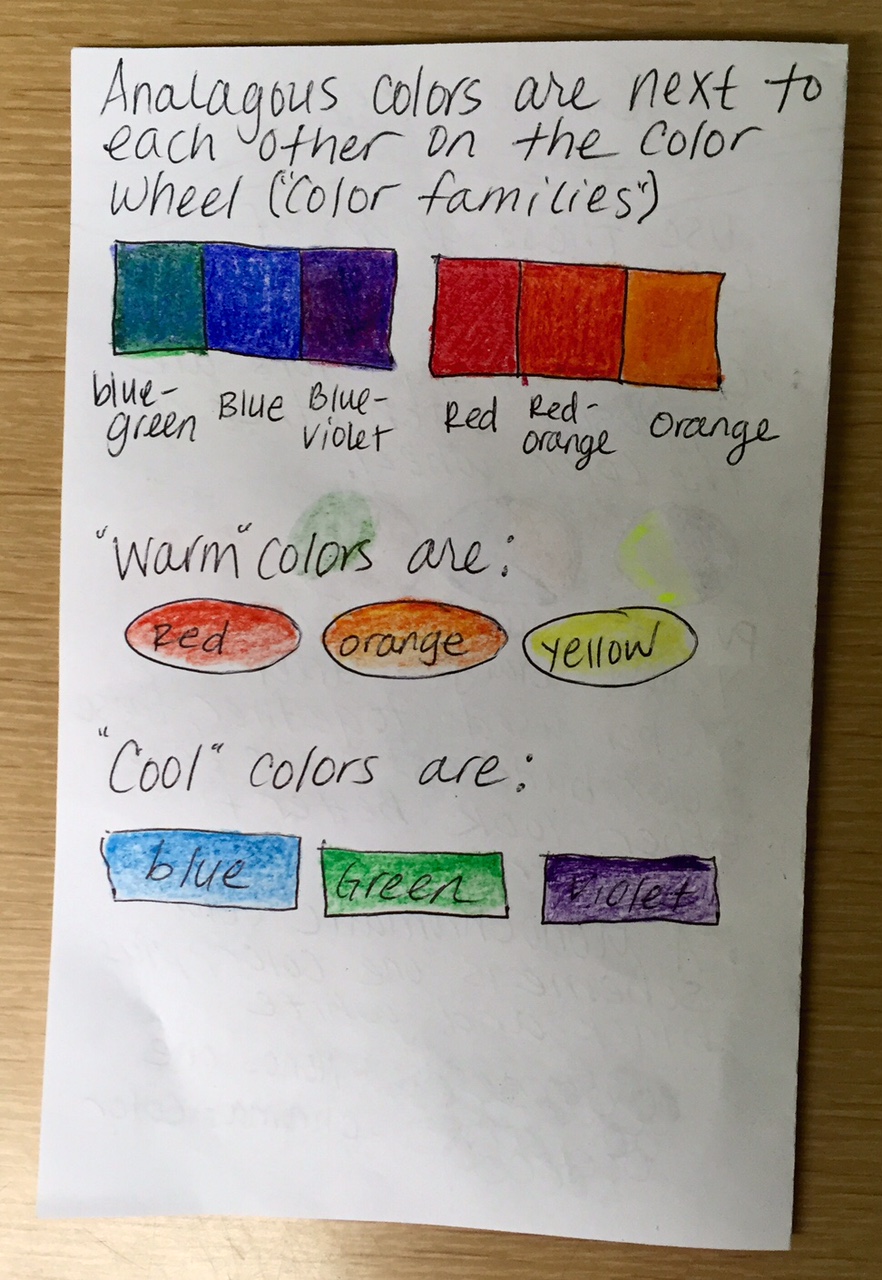 Analagous colors are next to
each other on the color
wheel ("Color families")
blue-
green
Blue
Blue-
violet
Red
Red-
orange
Orange
"Warm" colors are:
Red
orange
yellow
"Cool" colors are:
blue
Green
violet